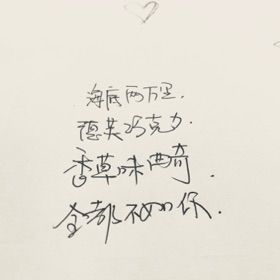 海底两万里.
德芙巧克力.
香草味曲奇.
全都不如你.